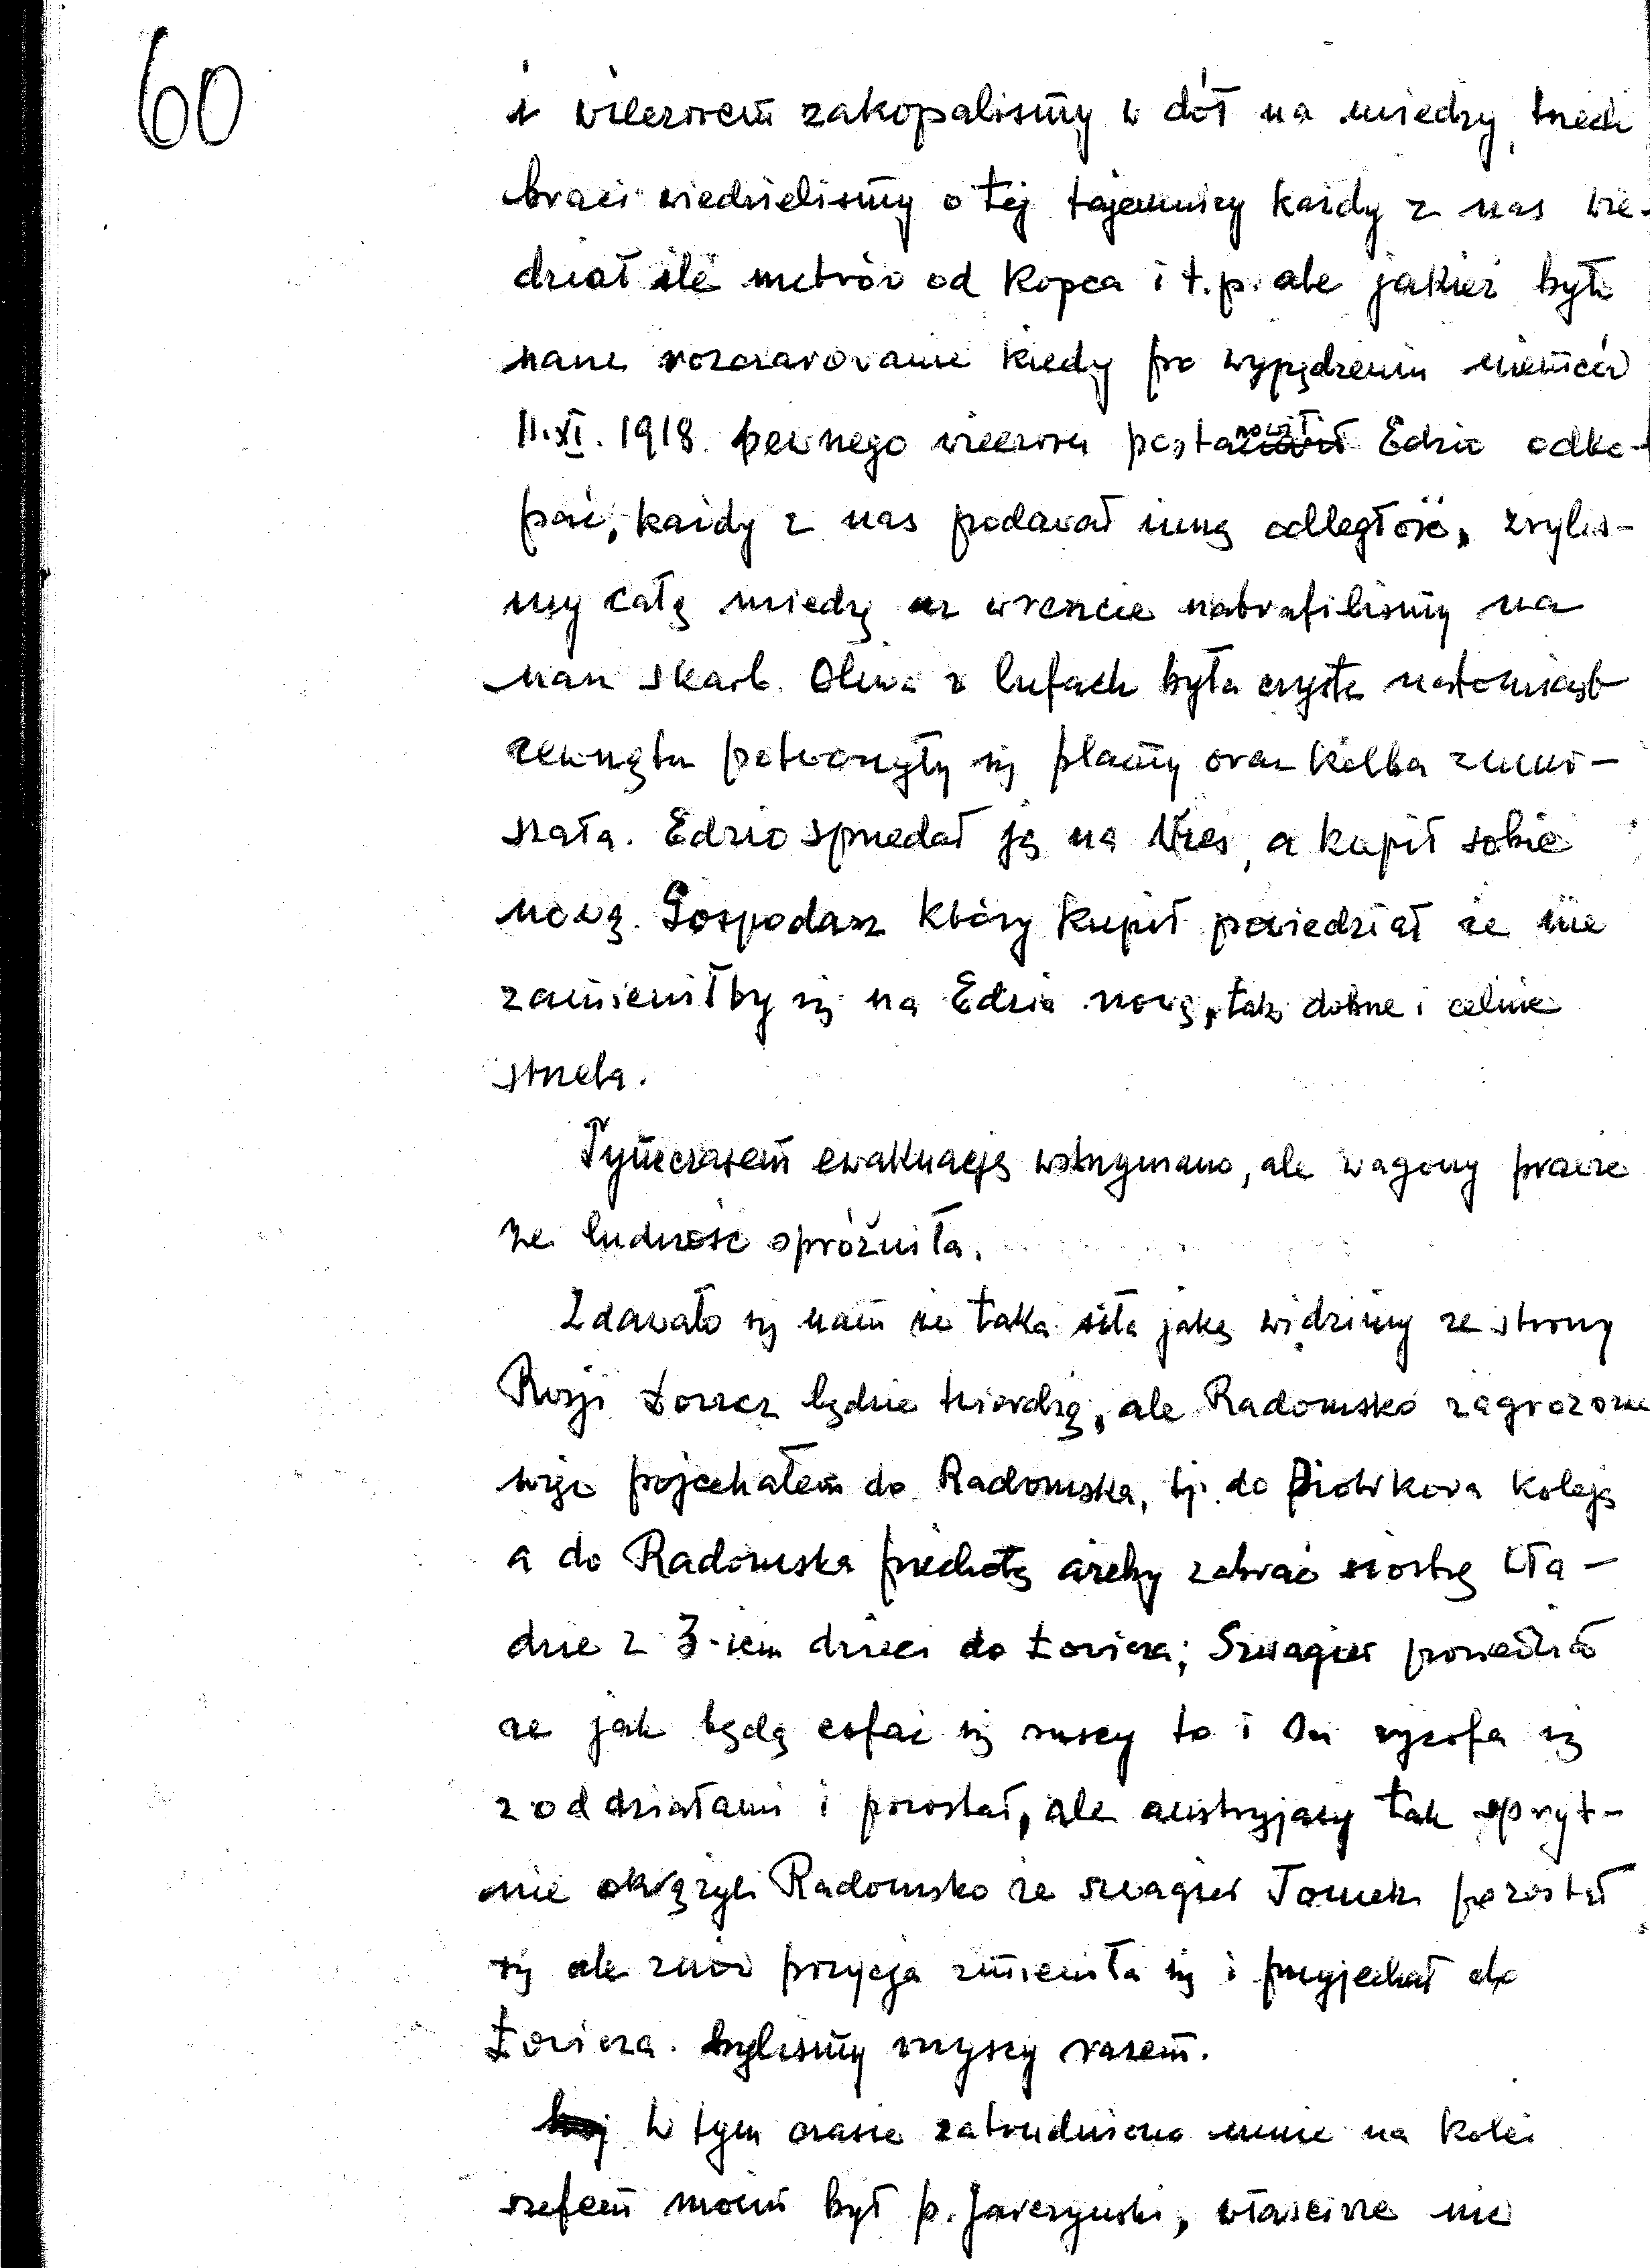 60
i wieczorem zakopalismy w dół na miedzy, trzech
braci wiedzielismy o tej tajemnicy każdy z nas wie-
dział ile metrów od kopca i t.p. ale jakież było
nasze rozczarowanie kiedy po wypędzeniu niemców
11.XI.1918. pewnego wieczoru postanowił Edzio odko-
pać, każdy z nas podawał inną odległość, zrylis-
my całą miedzę aż wreszcie natrafilismy na
nasz skarb. Oliwa w lufach była czysta natomiast
zewnątrz potworzyły się plamy oraz kolba zmur-
szała. Edzio sprzedał ją na wieś, a kupił sobie
nową. Gospodasz który kupił powiedział że nie
zamieniłby się na Edzia nową, tak dobrze i celnie
strzela.
Tymczasem ewakuację wstrzymano, ale wagony prawie
że ludność opróżniła.
Zdawało się nam że taka siła jaką widzimy ze strony
Rosji Łowicz będzie twierdzą, ale Radomsko zagrożone
więc pojechałem do Radomska, tj. do Piotrkowa koleją
a do Radomska piechotą ażeby zabrać siostrę Wła-
dzię z 3-iem dzieci do Łowicza; Szwagier powiedział
że jak będą cofać się ruscy to i On wycofa się
z oddziałami i pozostał, ale austryjacy tak spryt-
nie okrążyli Radomsko że szwagier Tomek pozostał
się ale znów pozycja zmieniła się i przyjechał do
Łowicza. bylismy wszyscy razem.
W tym czasie zatrudniono mnie na kolei
szefem moim był p. Jawczyński, właściwie nie